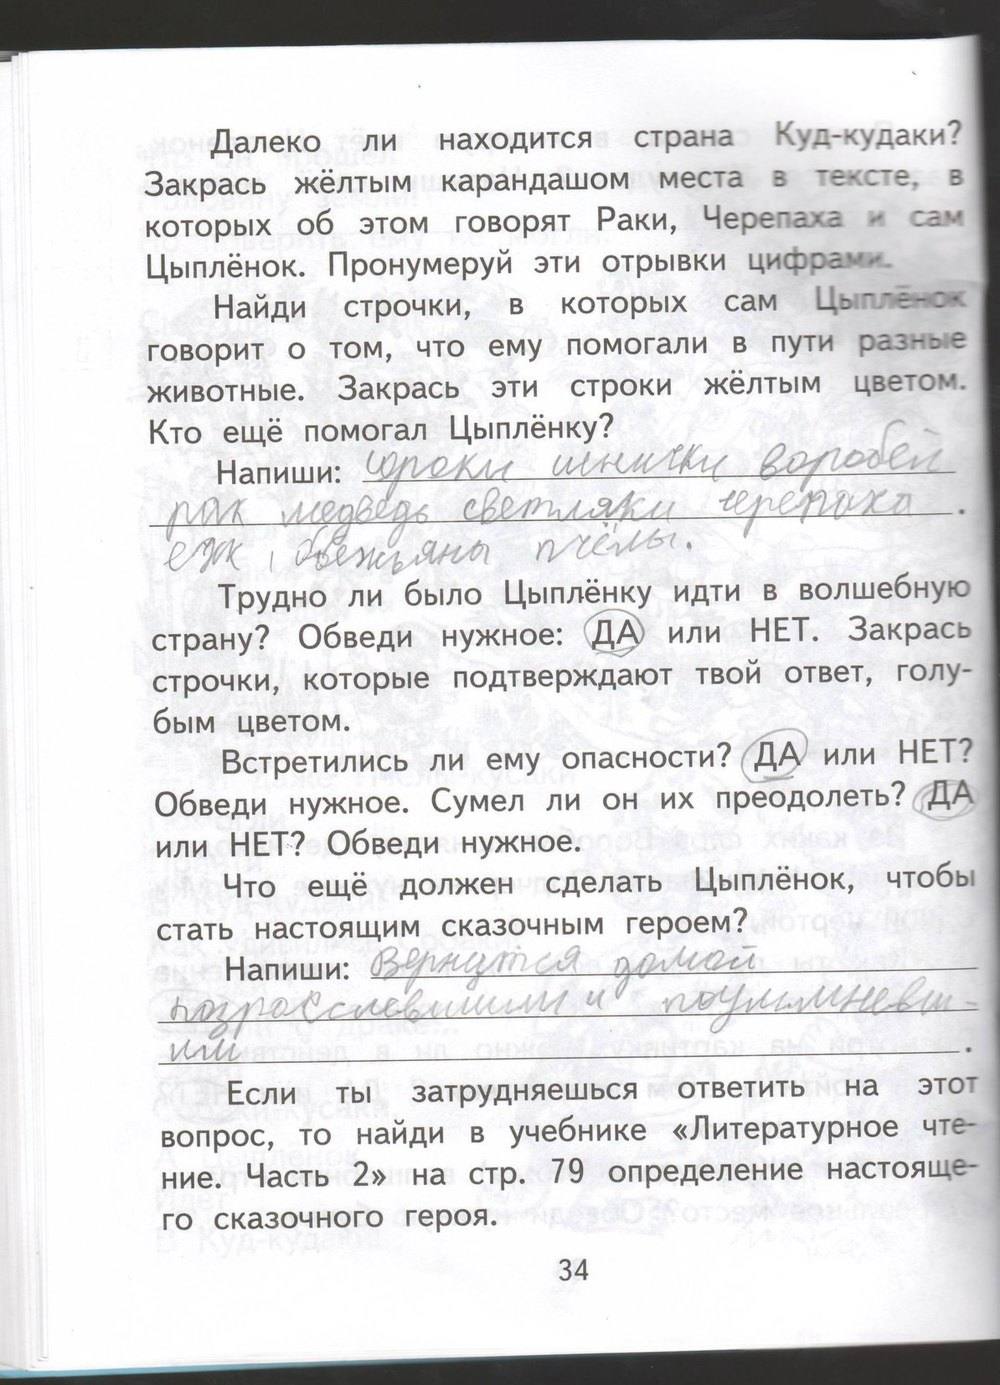 Далеко ли находится страна Куд-кудаки?
Закрась жёлтым карандашом места в тексте, в
которых об этом говорят Раки, Черепаха и сам
Цыплёнок. Пронумеруй эти отрывки цифрами.
Найди строчки, в которых сам Цыплёнок
говорит о том, что ему помогали в пути разные
животные. Закрась эти строки жёлтым цветом.
Кто ещё помогал Цыплёнку?
Напиши: сороки синички воробей
рак медведь светляки черепаха .
еж , обезьяны пчёлы.
Трудно ли было Цыплёнку идти в волшебную
страну? Обведи нужное: ДА или НЕТ. Закрась
строчки, которые подтверждают твой ответ, голу-
бым цветом.
Встретились ли ему опасности? ДА или НЕТ?
Обведи нужное. Сумел ли он их преодолеть? ДА
или НЕТ? Обведи нужное.
Что ещё должен сделать Цыплёнок, чтобы
стать настоящим сказочным героем?
Напиши: Вернутся домой
и
ими .
Если ты затрудняешься ответить на этот
вопрос, то найди в учебнике «Литературное чте-
ние. Часть 2» на стр. 79 определение настояще-
го сказочного героя.
34